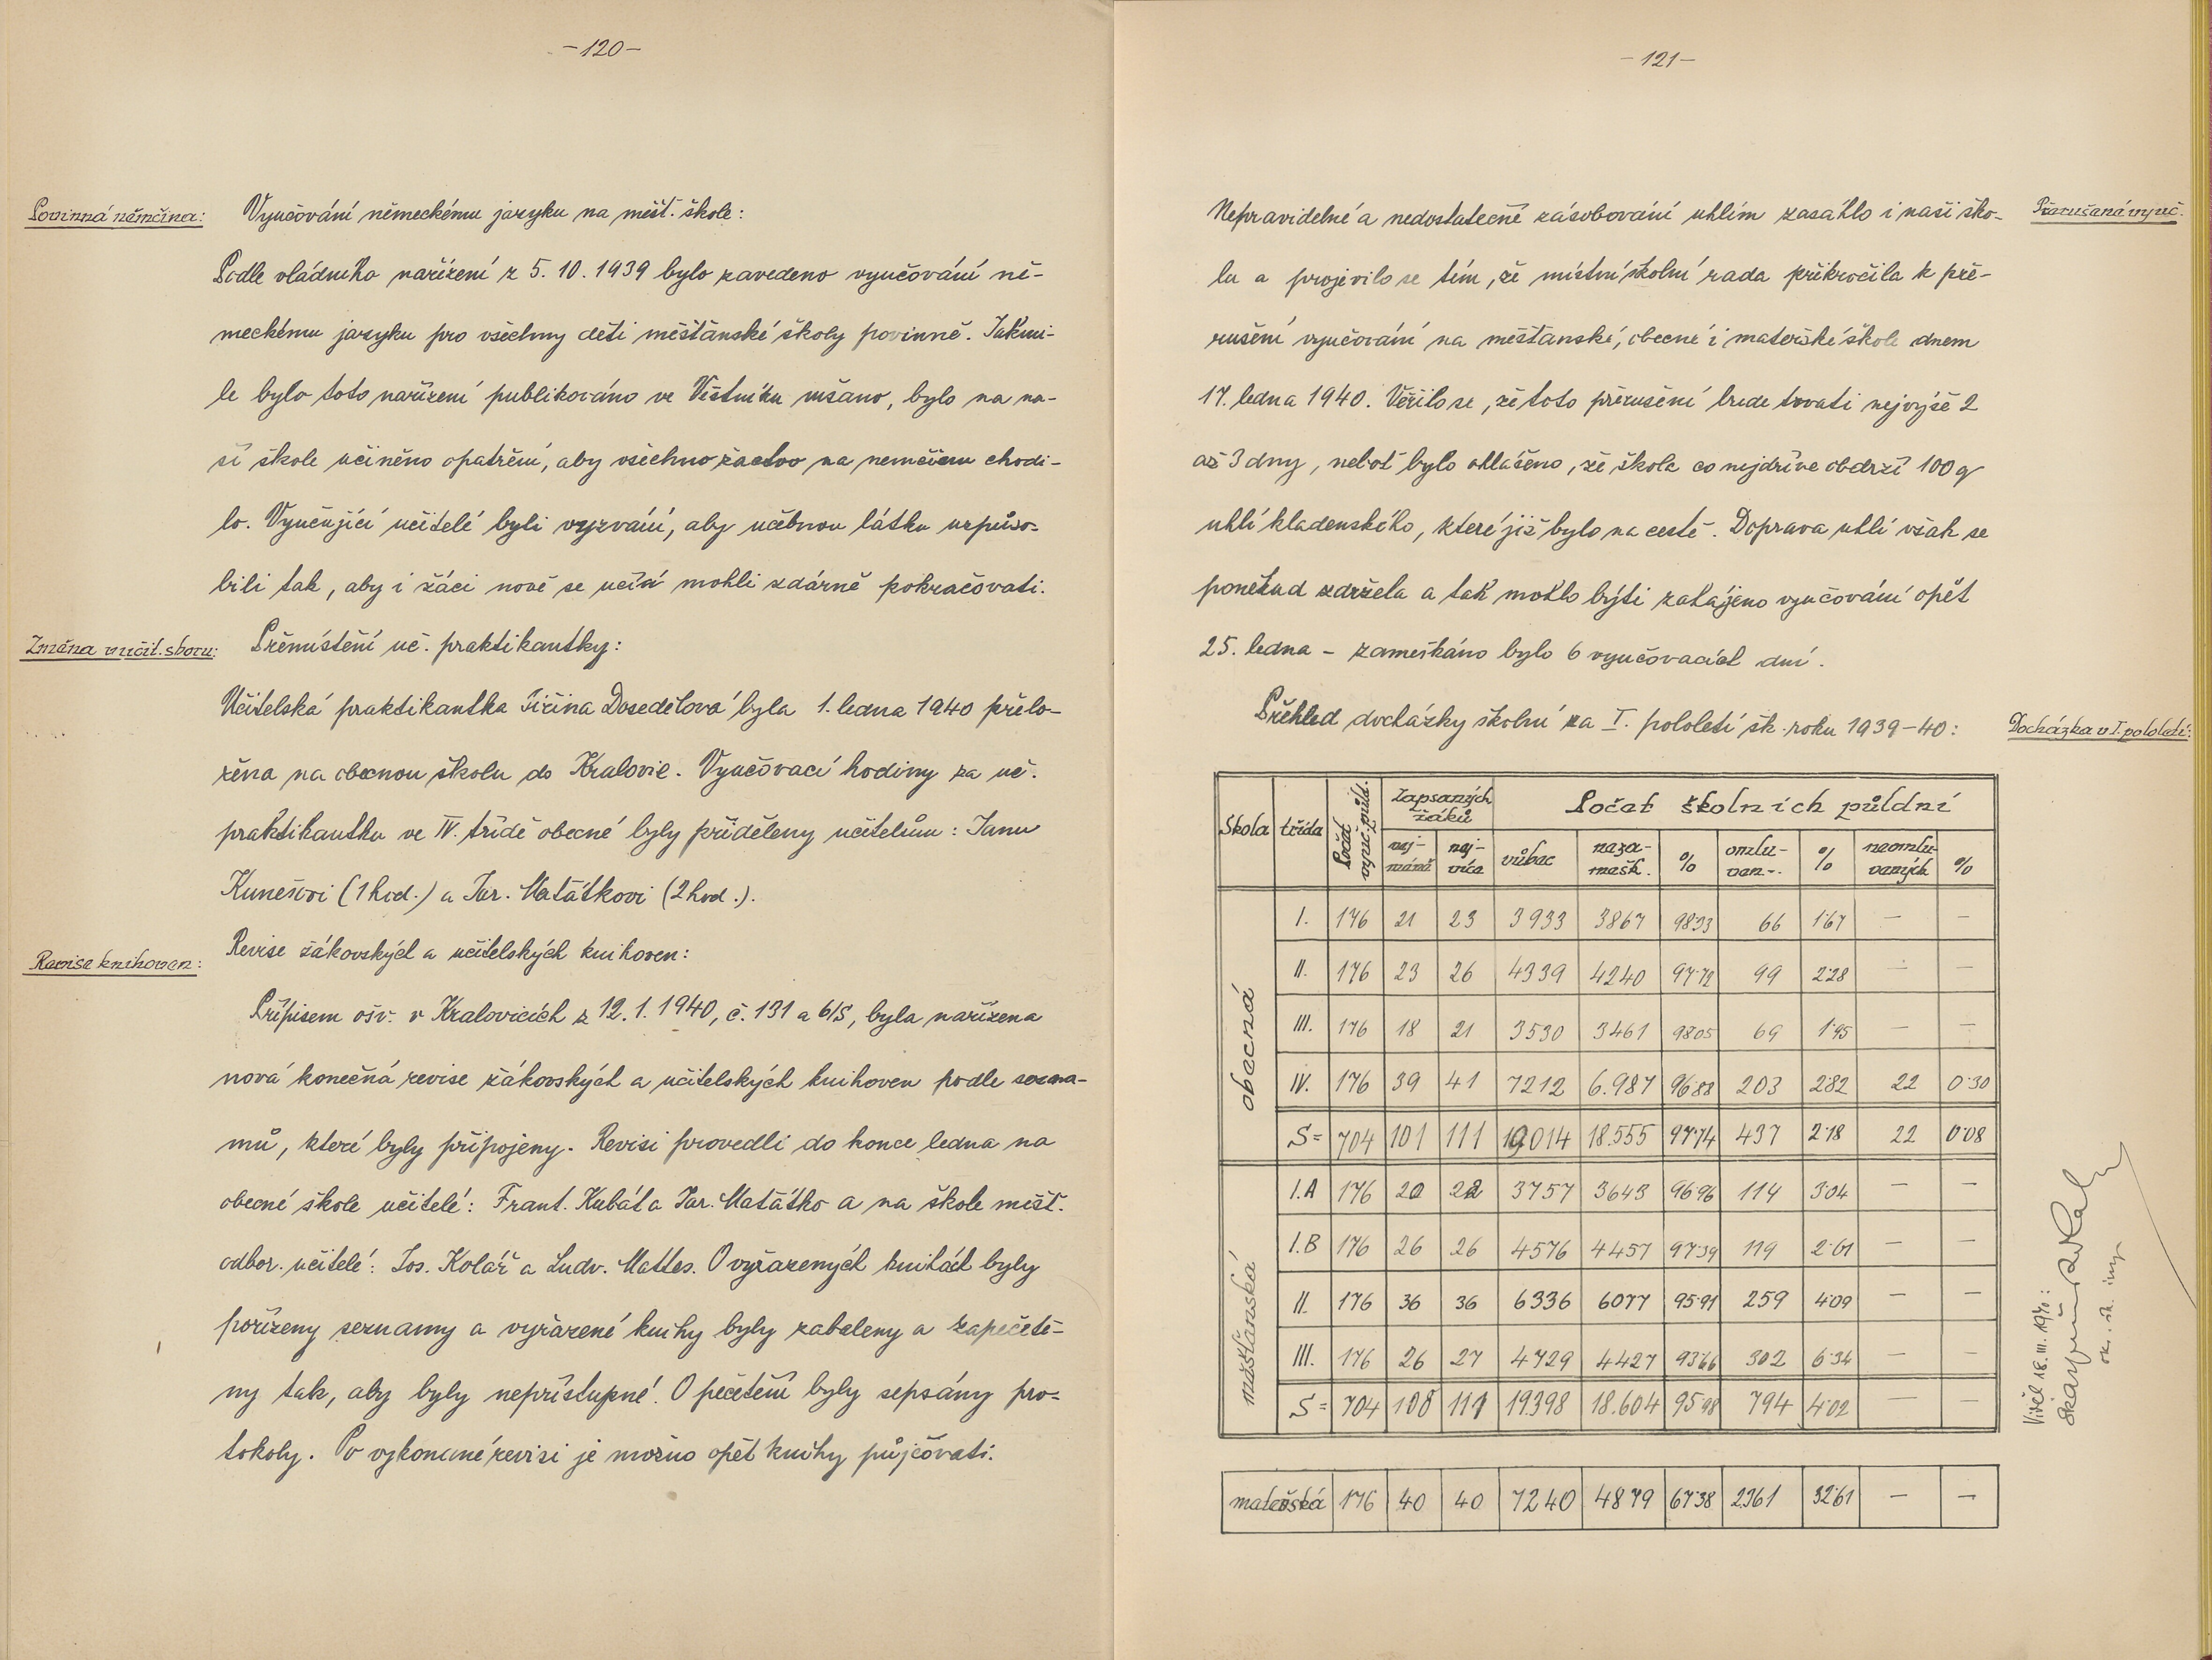 -120-
Povinná němčina:
Vyučování německému jazyku na měšť. škole:
Podle vládního nařízení z 5. 10. 1939 bylo zavedeno vyučování ně-
meckému jazyku pro všechny děti měšťanské školy povinně. Jakmi-
le bylo toto nařízení publikováno ve Věstníku mšano, bylo na na-
ší škole učiněno opatření, aby všechno žactvo na němčinu chodi-
lo. Vyučující učitelé byli vyzváni, aby učebnou látku uzpůso-
bili tak, aby i žáci nově se učící mohli zdárně pokračovati.
Změna v učit. sboru:
Přemístění uč. praktikantky:
Učitelská praktikantka Jiřina Dosedělová byla 1. ledna 1940 přelo-
žena na obecnou školu do Kralovic. Vyučovací hodiny za uč.
praktikantku ve IV. třídě obecné byly přiděleny učitelům: Janu
Kunešovi (1 hod.) a Jar. Matátkovi (2 hod.).
Revise knihoven:
Revise žákovských a učitelských knihoven:
Přípisem ošv. v Kralovicích z 12. 1. 1940, č. 131 a 6/5, byla nařízena
nová konečná revise žákovských a učitelských knihoven podle sezna-
mů, které byly připojeny. Revisi provedli do konce ledna na
obecné škole učitelé: Frant. Kubát a Jar. Matátko a na škole měšť.
odbor. učitelé: Jos. Kolář a Ludv. Mattes. O vyřazených knihách byly
pořízeny seznamy a vyřazené knihy byly zabaleny a zapečetě-
ny tak, aby byly nepřístupné. O pečetění byly sepsány pro-
tokoly. Po vykonané revisi je možno opět knihy půjčovati.
-121-
Přerušené vyuč.
Nepravidelné a nedostatečné zásobování uhlím zasáhlo i naši ško-
lu a projevilo se tím, že místní školní rada přikročila k pře-
rušení vyučování na měšťanské, obecné i mateřské škole dnem
17. ledna 1940. Věřilo se, že toto přerušení bude trvati nejvýše 2
až 3 dny, neboť bylo ohlášeno, že škola co nejdříve obdrží 100 q
uhlí kladenského, které již bylo na cestě. Doprava uhlí však se
poněkud zdržela a tak mohlo býti zahájeno vyučování opět
25. ledna - zameškáno bylo 6 vyučovacích dní.
Docházka v I. pololetí:
Přehled docházky školní za I. pololetí šk. roku 1939-40:
Škola třída Počet vyuč. půld. Zapsaných žáků Počet školních půldní
nej-méně nej-více vůbec neza-mešk. % omlu-ven-. % neomlu-vených %
obecná
I. 176 21 23 3933 3867 98'33 66 1'67 — —
II. 176 23 26 4339 4240 97'72 99 2'28 — —
III. 176 18 21 3530 3461 98'05 69 1'95 — —
IV. 176 39 41 7212 6.987 96'88 203 2'82 22 0'30
S= 704 101 111 19014 18.555 97'74 437 2'18 22 0'08
měšťanská
I.A 176 20 22 3757 3643 96'96 114 3'04 — —
I.B 176 26 26 4576 4457 97'39 119 2'61 — —
II. 176 36 36 6336 6077 95'91 259 4'09 — —
III. 176 26 27 4729 4427 93'66 302 6'34 — —
S= 704 108 111 19.398 18.604 95'98 794 4'02 — —
mateřská 176 40 40 7240 4879 67'38 2361 32'61 — —
Viděl 18. III. 1940:
ok. šk. insp.